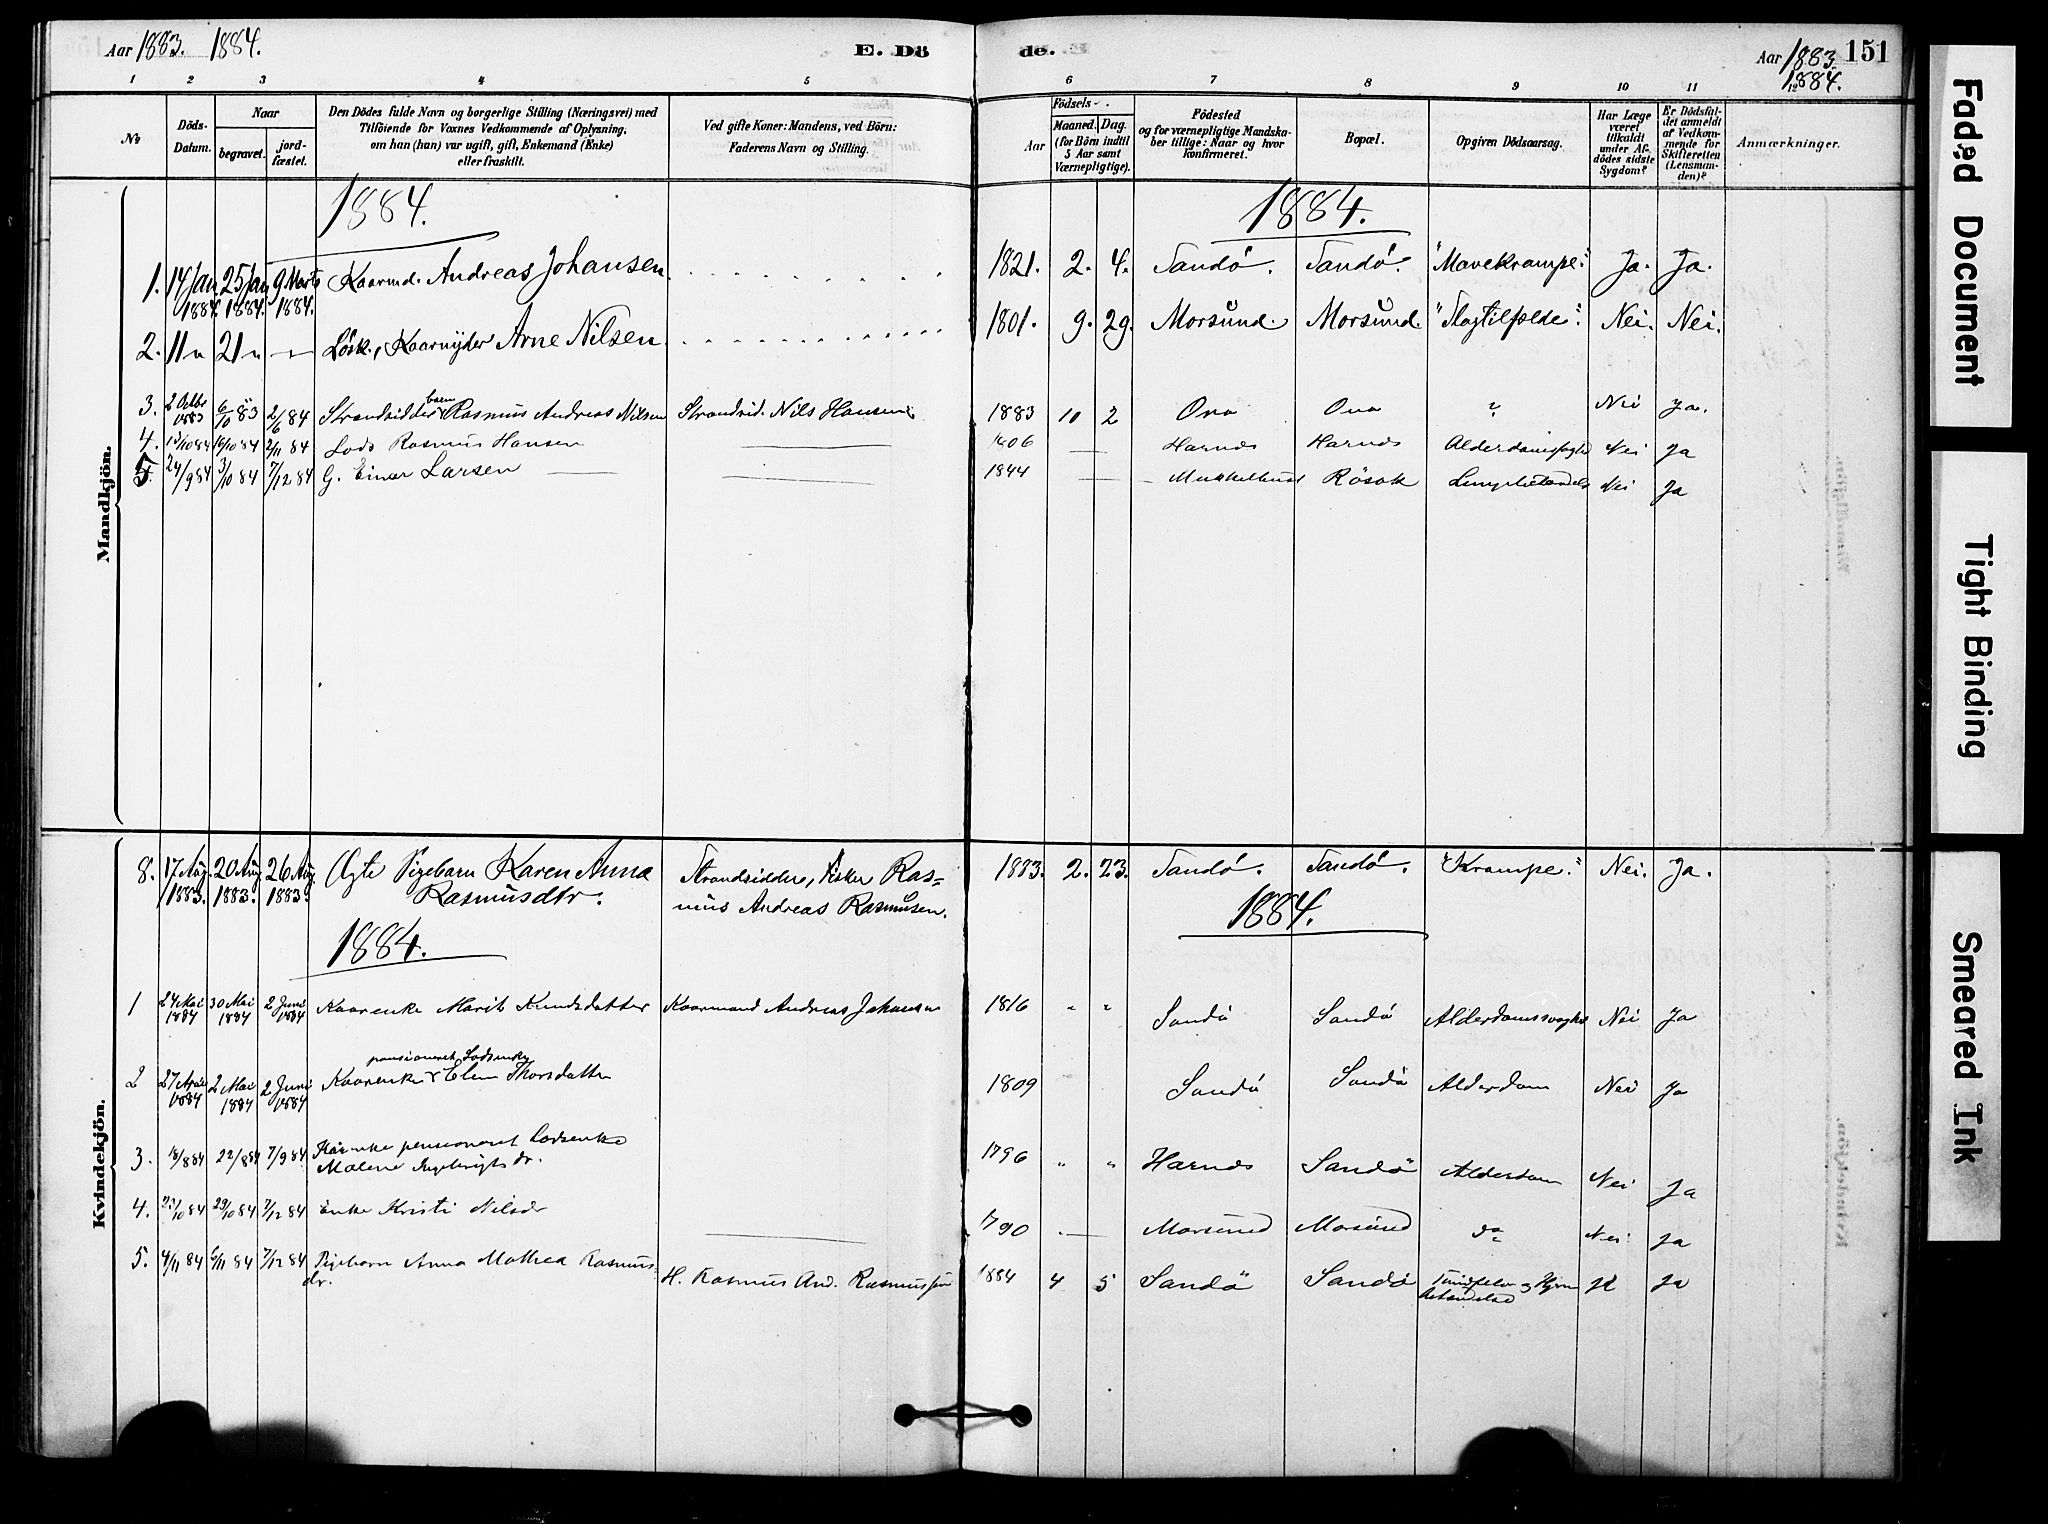 Aar 1883. 1884.
E. Dö
de.
Aar 1883. 151
1884.
1 2 3 4 5
6 7 8 9 10 11 12
No
Döds-
Datum.
Naar
begravet.
jord-
fæstet.
Den Dödes fulde Navn og borgerlige Stilling (Næringsvei) med
Tilföiende for Voxnes Vedkommende af Oplysning,
om han (hun) var ugift, gift, Enkemand (Enke)
eller fraskilt.
Ved gifte Koner: Mandens, ved Börn:
Faderens Navn og Stilling.
Födsels-
Aar
Maaned. Dag.
(for Börn indtil
5 Aar samt
Værnepligtige).
Födested
og for værnepligtige Mandska-
ber tillige: Naar og hvor
konfirmeret.
Bopæl.
Opgiven Dödsaarsag.
Har Læge
været
tilkaldt
under Af-
dödes sidste
Sygdom?
Er Dödsfal-
det anmeldt
af Vedkom-
mende for
Skifteretten
(Lensman-
den)?
Anmærkninger.
Mandkjön.
1884. 1884.
1. 14 Jan 1884. 25 Jan 1884. 9 Marts 1884. Kaarmd. Andreas Johansen. 1821. 2. 4. Sandö. Sandö. "Mavekrampe." Ja. Ja.
2. 11 " 21 " — Lösk., Kaarnyder Arne Nilsen 1801. 9. 29. Morsund. Morsund. "Slagtilfælde". Nei. Nei.
3. 2 Octbr 1883 6/10 83 2/6 84 Strandsidderbarn Rasmus Andreas Nilsen Strandsid. Nils Hansen 1883 10 2 Ona Ona ? Nei Ja.
4. 13/10 84 16/10 84 2/11 84 Lods Rasmus Hansen — 1806 — Harnæs Harnæs Alderdomssvaghed Nei Ja
5. 24/9 84 3/10 84 7/12 84 G. Einar Larsen — 1844 — Rösok Nei Ja
Kvindekjön.
8. 17 Aug. 1883. 20 Aug. 1883. 26 Aug. 1883. Ægte Pigebarn Karen Anna Strandsidder, Fisker Ras- 1883. 2. 23. Sandö. Sandö. "Krampe." Nei. Ja.
Rasmusdtr. mus Andreas Rasmusen.
1884. 1884.
1 24 Mai 1884 30 Mai 1884 2 Juni 1884 Kaarenke Marit Knudsdatter Kaarmand Andreas Johansen 1816 " " Sandö Sandö Alderdomssvaghed Nei Ja
pensioneret Lodsenke
2 27 April 1884 2 Mai 1884 2 Juni 1884 Kaarenke Elen Thorsdatter 1809 Sandö Sandö Alderdom Nei Ja
3. 18/8 84 22/8 84 7/9 84 Kårenke pensioneret Lodsenke 1796 " " Harnæs Sandö Alderdom Nei Ja
Malene Ingebrigtsdr.
4. 23/10 84 29/10 84 7/12 84 Enke Kristi Nilsdr — 1790 — Morsund Morsund do Nei Ja
5. 4/11 84 6/11 84 7/12 84 Pigebarn Anna Mathea Rasmus- 1884 4 5 Sandö Sandö Ja
dr. H. Rasmus And. Rasmussen
Faded Document
Tight Binding
Smeared Ink